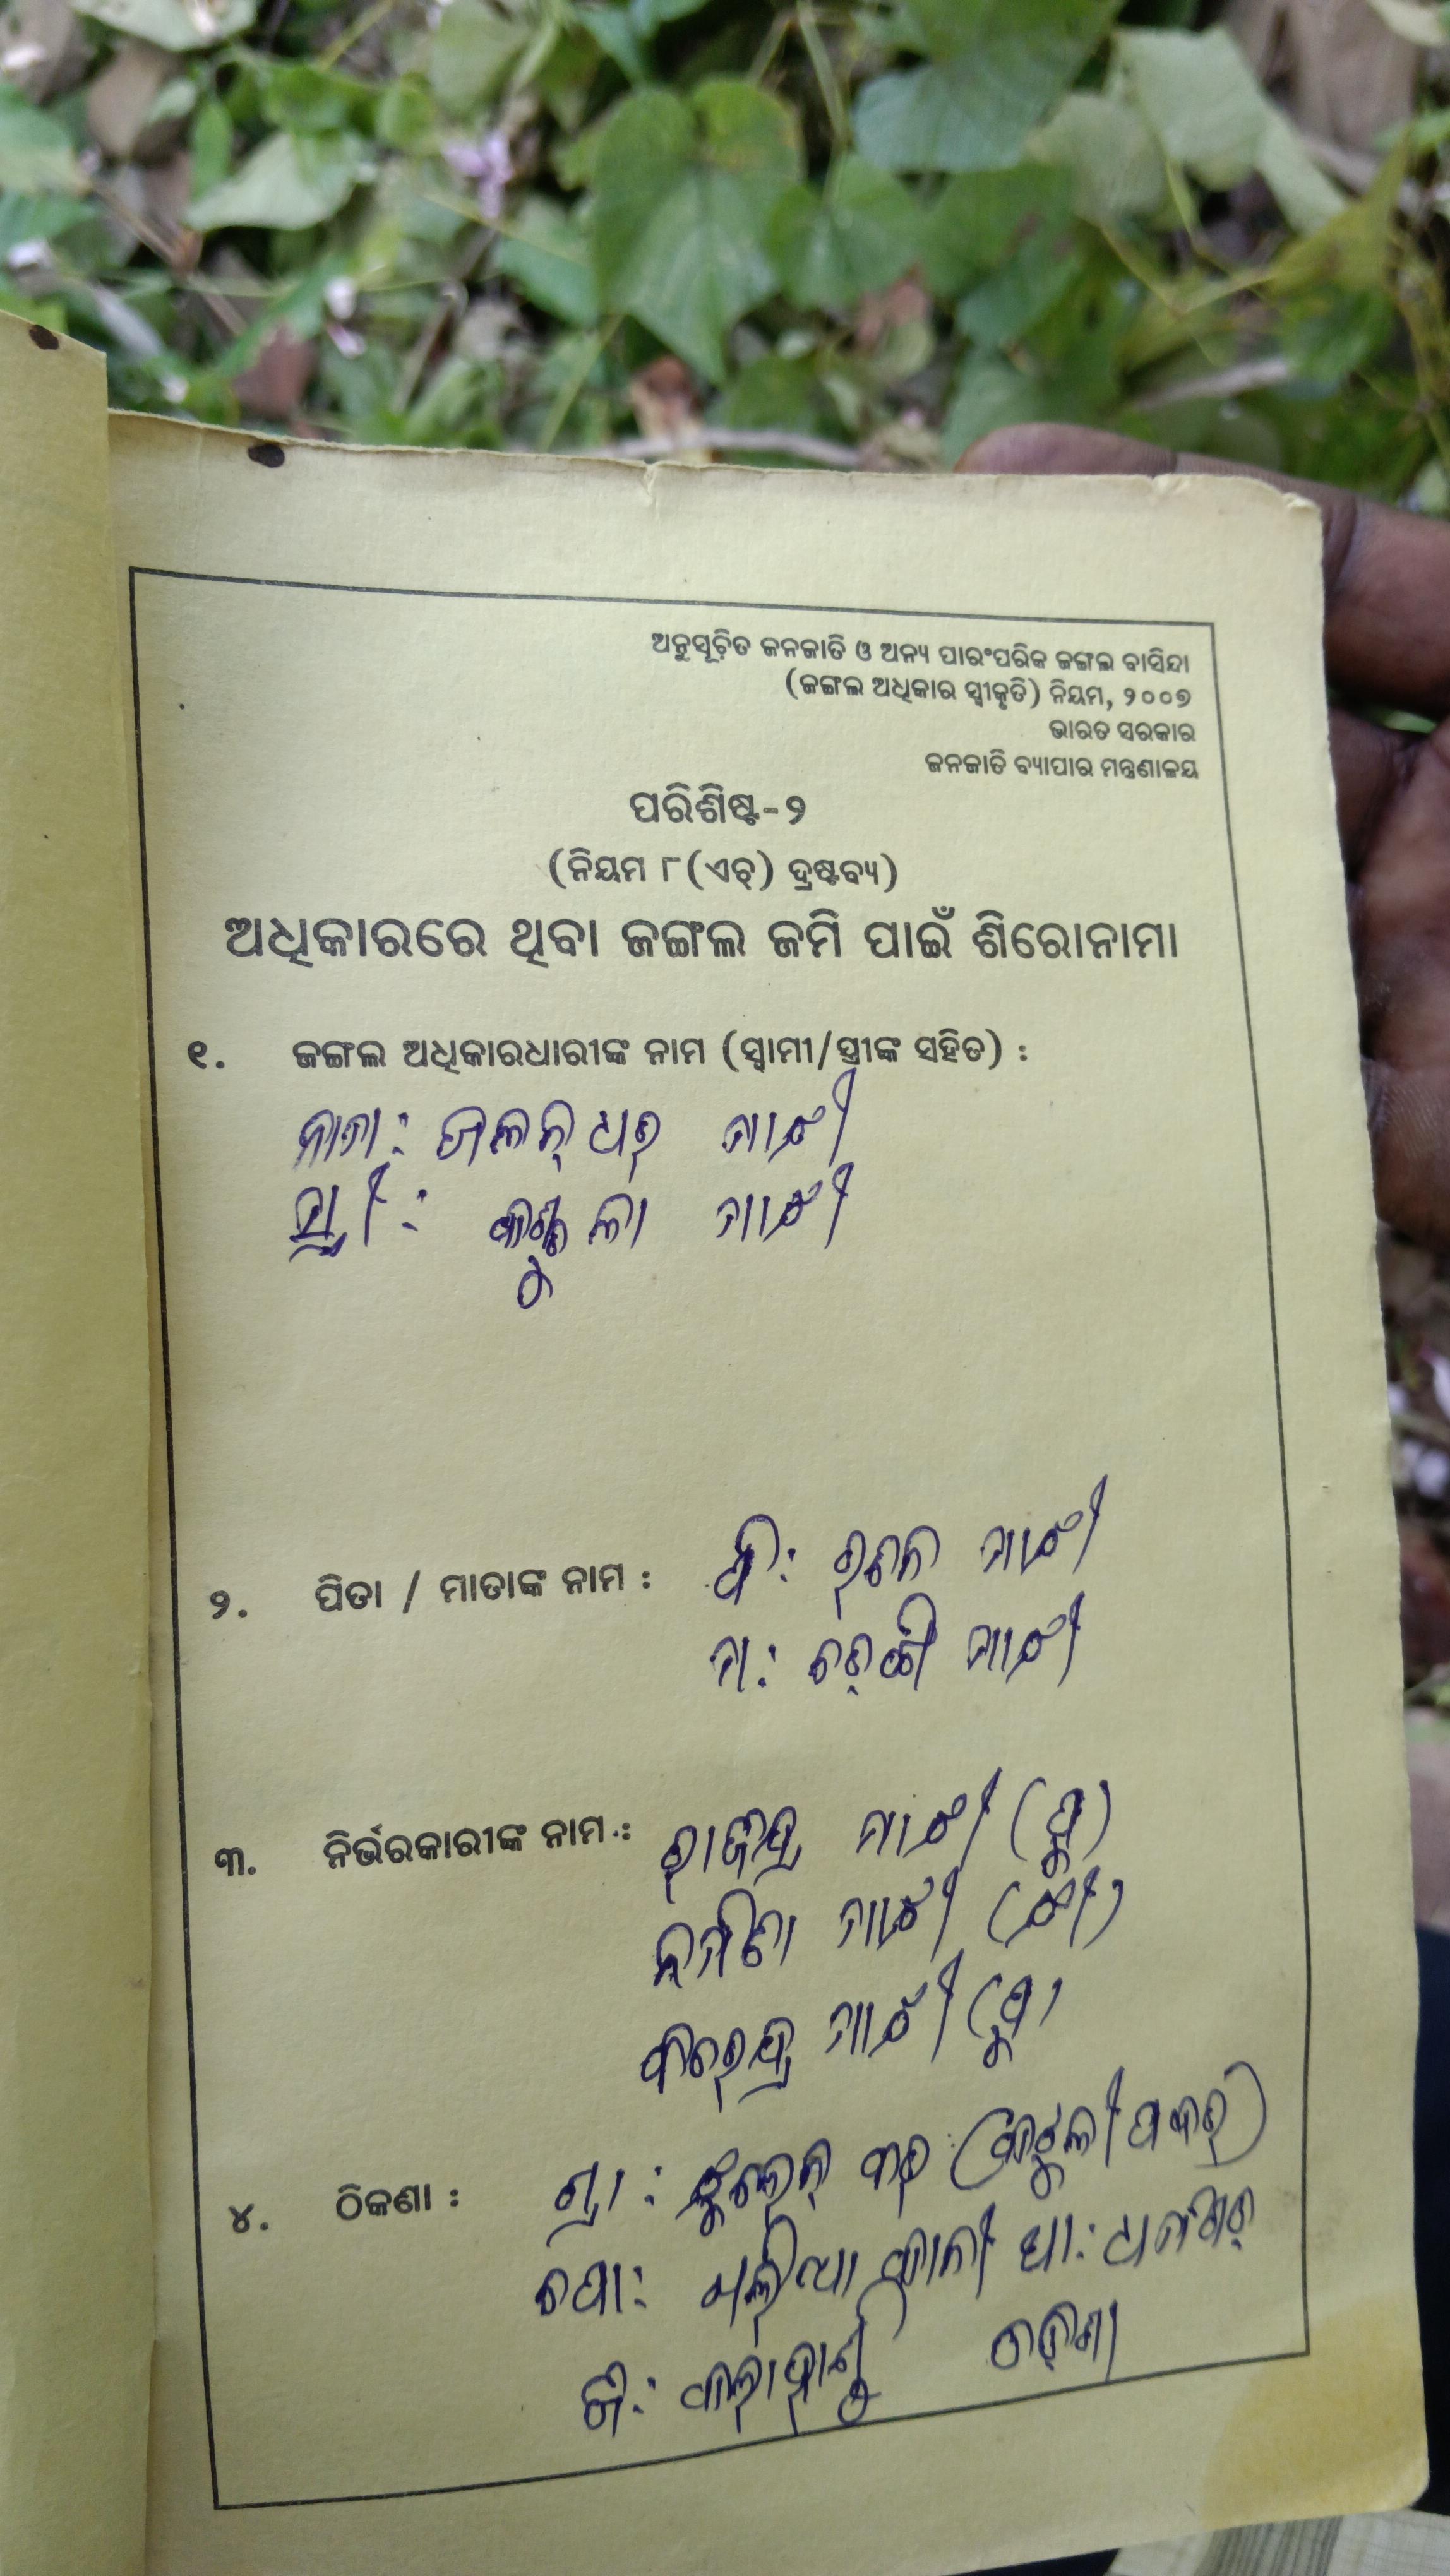 ଅନୁସୂଚିତ ଜନଜାତି ଓ ଅନ୍ୟ ପାରଂପରିକ ଜଙ୍ଗଲ ବାସିନ୍ଦା
(ଜଙ୍ଗଲ ଅଧିକାର ସ୍ୱୀକୃତି) ନିୟମ, ୨୦୦୭
ଭାରତ ସରକାର
ଜନଜାତି ବ୍ୟାପାର ମନ୍ତ୍ରଣାଳୟ
ପରିଶିଷ୍ଟ-୨
(ନିୟମ ୮(ଏଚ୍) ଦ୍ରଷ୍ଟବ୍ୟ)
ଅଧିକାରରେ ଥିବା ଜଙ୍ଗଲ ଜମି ପାଇଁ ଶିରୋନାମା
୧. ଜଙ୍ଗଲ ଅଧିକାରଧାରୀଙ୍କ ନାମ (ସ୍ୱାମୀ/ସ୍ତ୍ରୀଙ୍କ ସହିତ) :
ନାମ: ଜଲନ୍ ଧର୍ ମାଝୀ
ସ୍ତ୍ରୀ: ମାଝୀ
୨. ପିତା / ମାତାଙ୍କ ନାମ : ପି: ମାଝୀ
ମା: ମାଝୀ
୩. ନିର୍ଭରକାରୀଙ୍କ ନାମ : ରାଜେନ୍ଦ୍ର ମାଝୀ (ପୁ)
ମାଝୀ (ଝୀ)
ମାଝୀ (ପୁ)
୪. ଠିକଣା : ଗ୍ରା :
ପୋ: ଥା: ଧର୍ମଗଡ଼
ଜି: କଳାହାଣ୍ଡି ଓଡ଼ିଶା